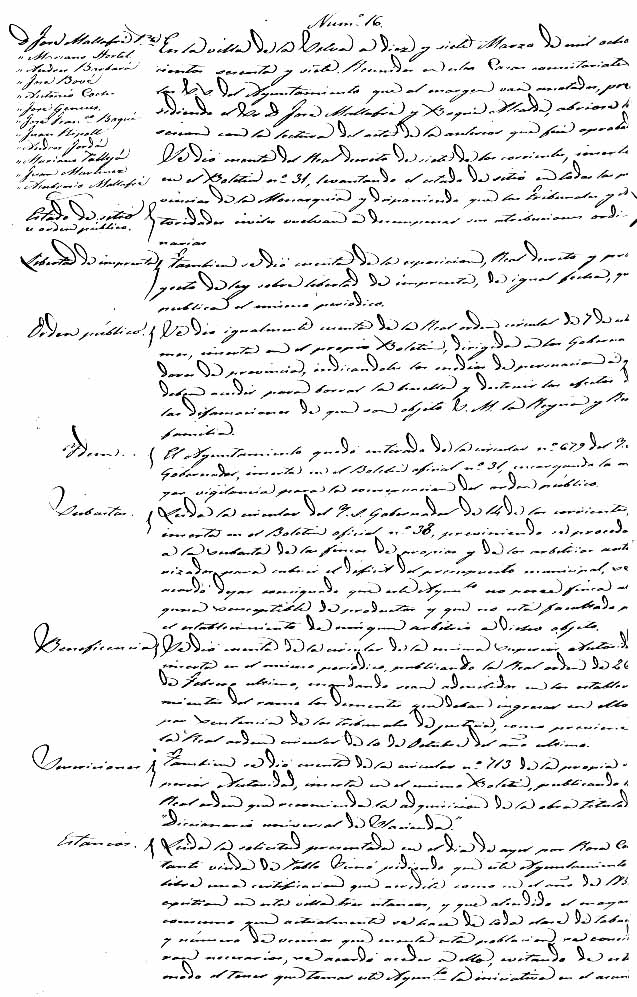 Num.º 16.
D. José Mallafré
" Mariano Hortet
" Andres Barbará
" José Bové
" José Genius
" Juan Ripoll
" Pedro Jordá
" Juan Martinez
" Antonio Mallafré
En la villa de la Selva a diez y siete Marzo de mil ocho
cientos sesenta y siete Reunidos en estas Casas consistoriales
los S.S. del Ayuntamiento que al margen van anotados, pre
sidiendo el D. José Mallafré y Abada, abriose la
sesion con la lectura del acta de la anterior que fué aprobada
Estado de sitio
u orden público.
Se dió cuenta del Real decreto de siete de los corrientes, inserto
en el Boletin nº 31, levantando el estado de sitio en todas las pro
vincias de la Monarquia y disponiendo que los Tribunales y au
toridades civiles vuelvan a desempeñar sus atribuciones ordi
narias
Libertad de imprenta
Tambien se dió cuenta de la exposicion, Real decreto y pro
yecto de ley sobre libertad de imprenta, de igual fecha, que
publica el mismo periodico.
Orden público.
Se dió igualmente cuenta de la Real orden circular de 7 de este
mes, inserta en el propio Boletin, dirigida a los Goberna
dores de provincia, indicandoles los medios de persuacion a que
deben acudir para borrar la huella y destruir los efectos de
las difamaciones de que son objeto S. M. la Reyna y Real
familia.
Idem.
El Ayuntamiento quedó enterado de la circular nº 679 del
Gobernador, inserta en el Boletin oficial nº 31, encargando la ma
yor vigilancia para la conservacion del orden público.
Subastas.
Leida la circular del Gobernador de 14 de los corrientes,
inserta en el Boletin oficial nº 38, previniendo se proceda
a la subasta de las fincas de propios y de los arbitrios auto
rizados para cubrir el deficit del presupuesto municipal, se
acordó dejar consignado que este Ayunt.to no posee finca al
guna susceptible de productos y que no está facultado p
el establecimiento de ningun arbitrio a dicho objeto.
Beneficencia
Se dió cuenta de la circular de la misma superior Autoridad
inserta en el mismo periodico, publicando la Real orden de 26
de Febrero ultimo, mandando sean admitidos en los estableci
mientos del ramo los dementes que deban ingresar en ellos
por sentencia de los tribunales de justicia, como previene
la Real orden circular de 10 de Octubre del año ultimo.
Suscriciones
Tambien se dió cuenta de la circular nº 713 de la propia su
perior Autoridad, inserta en el mismo Boletin, publicando la
Real orden que recomienda la adquisicion de la obra titulada
"Diccionario universal de Hacienda."
Estancos.
Leida la solicitud presentada en el dia de ayer por Rosa
viuda de Pablo pidiendo que este Ayuntamiento
libre una certificacion que acredite como en el año de
existian en esta villa tres estancos, y que atendido el mayor
consumo que actualmente se hace de toda clase de tabacos
y número de vecinos que cuenta esta poblacion, se consi
ran necesarios, se acordó acceder a ello, evitando de este
modo el tener que tomar este Ayunt.to la iniciativa en el asun